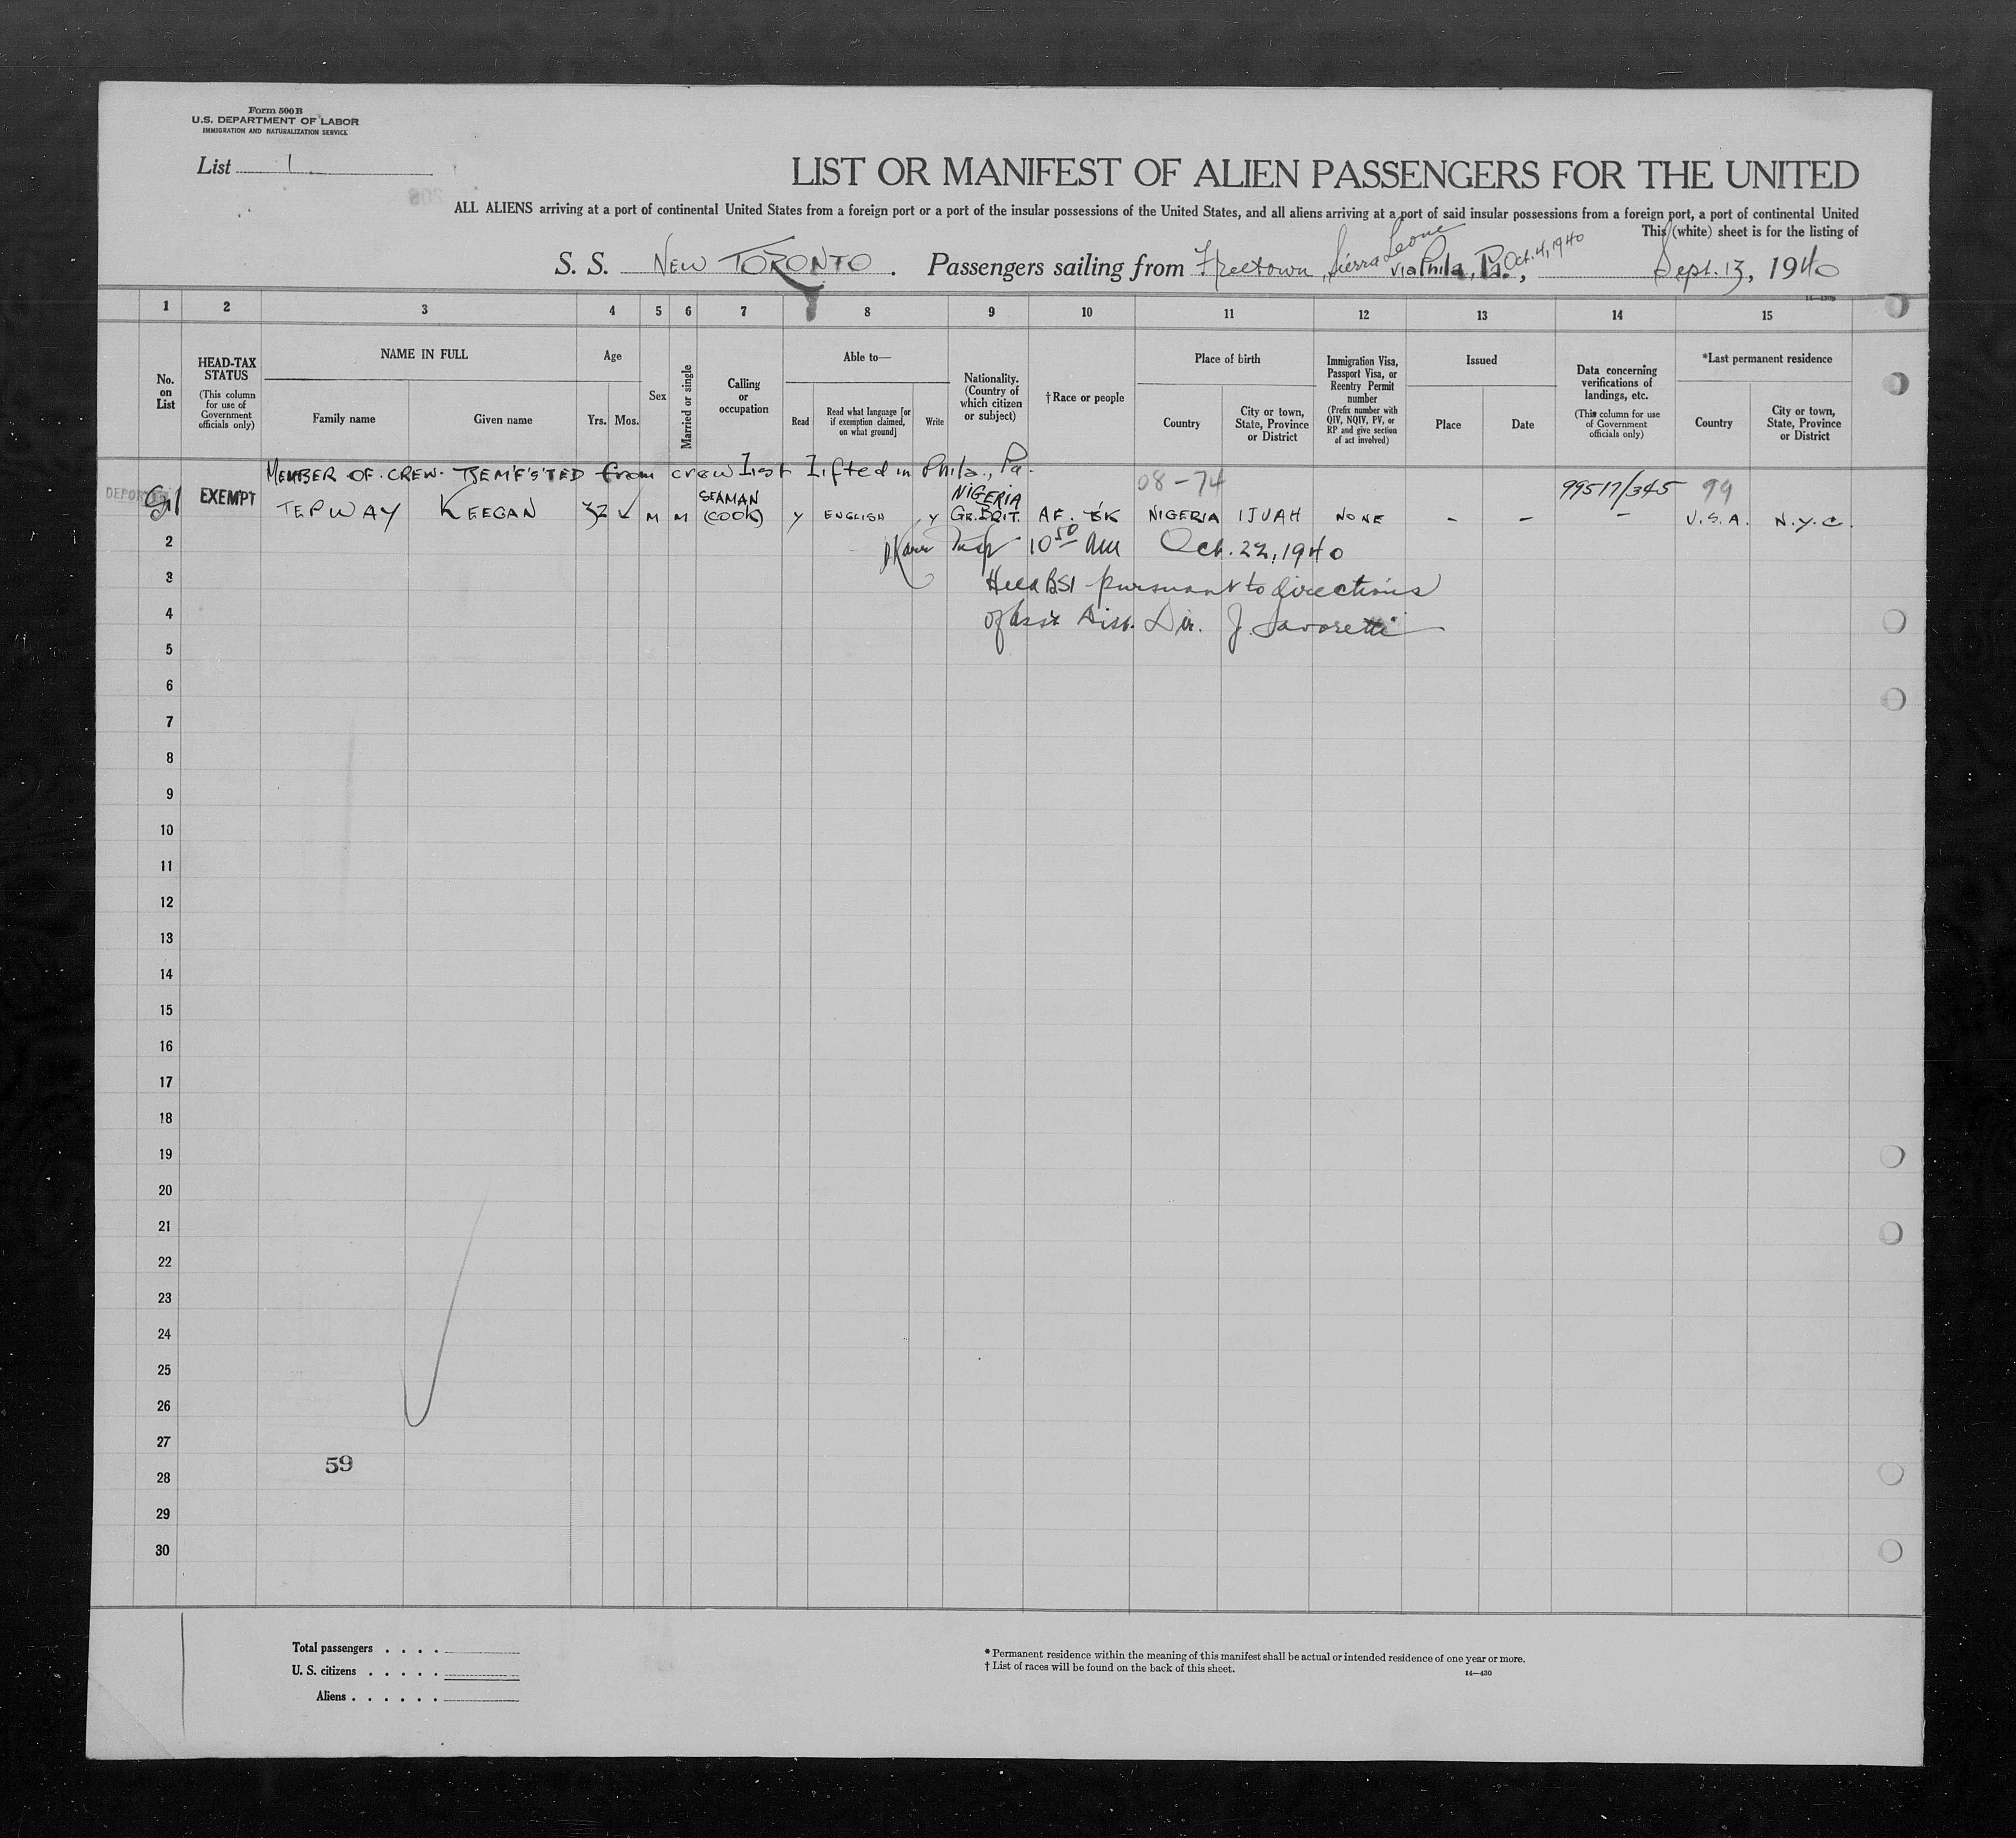 Form 500 B
U.S. DEPARTMENT OF LABOR
IMMIGRATION AND NATURALIZATION SERVICE
List 1
LIST OR MANIFEST OF ALIEN PASSENGERS FOR THE UNITED
ALL ALIENS arriving at a port of continental United States from a foreign port or a port of the insular possessions of the United States, and all aliens arriving at a port of said insular possessions from a foreign port, a port of continental United
This (white) sheet is for the listing of
S. S. NEW TORONTO. Passengers sailing from Freetown, Sierra Leone via Phila, Pa. Oct. 4, 1940, Sept. 13, 1940
1 2 3 4 5 6 7 8 9 10 11 12 13 14 15
No. on List
HEAD-TAX STATUS
(This column for use of Government officials only)
NAME IN FULL
Family name
Given name
Age
Yrs.
Mos.
Sex
Married or single
Calling or occupation
Able to—
Read
Read what language [or if exemption claimed, on what ground]
Write
Nationality. (Country of which citizen or subject)
†Race or people
Place of birth
Country
City or town, State, Province or District
Immigration Visa, Passport Visa, or Reentry Permit number
(Prefix number with QIV, NQIV, PV, or RP and give section of act involved)
Issued
Place
Date
Data concerning verifications of landings, etc.
(This column for use of Government officials only)
*Last permanent residence
Country
City or town, State, Province or District
MEMBER OF CREW. from crew list lifted in Phila., Pa.
08-74
99517/345 99
1 EXEMPT TEPWAY KEEGAN 32 M M SEAMAN (COOK) Y ENGLISH Y NIGERIA GR. BRIT. AF. BK NIGERIA IJUAH NONE - - - U.S.A. N.Y.C.
2 Insp 10 50 AM Oct. 22, 1940
3 Held BSI pursuant to directions
4 of Asst Dist. Dir. J. Savoretti
5
6
7
8
9
10
11
12
13
14
15
16
17
18
19
20
21
22
23
24
25
26
27
59
28
29
30
Total passengers . . . .
U. S. citizens . . . . .
Aliens . . . . . .
* Permanent residence within the meaning of this manifest shall be actual or intended residence of one year or more.
† List of races will be found on the back of this sheet.
14—430